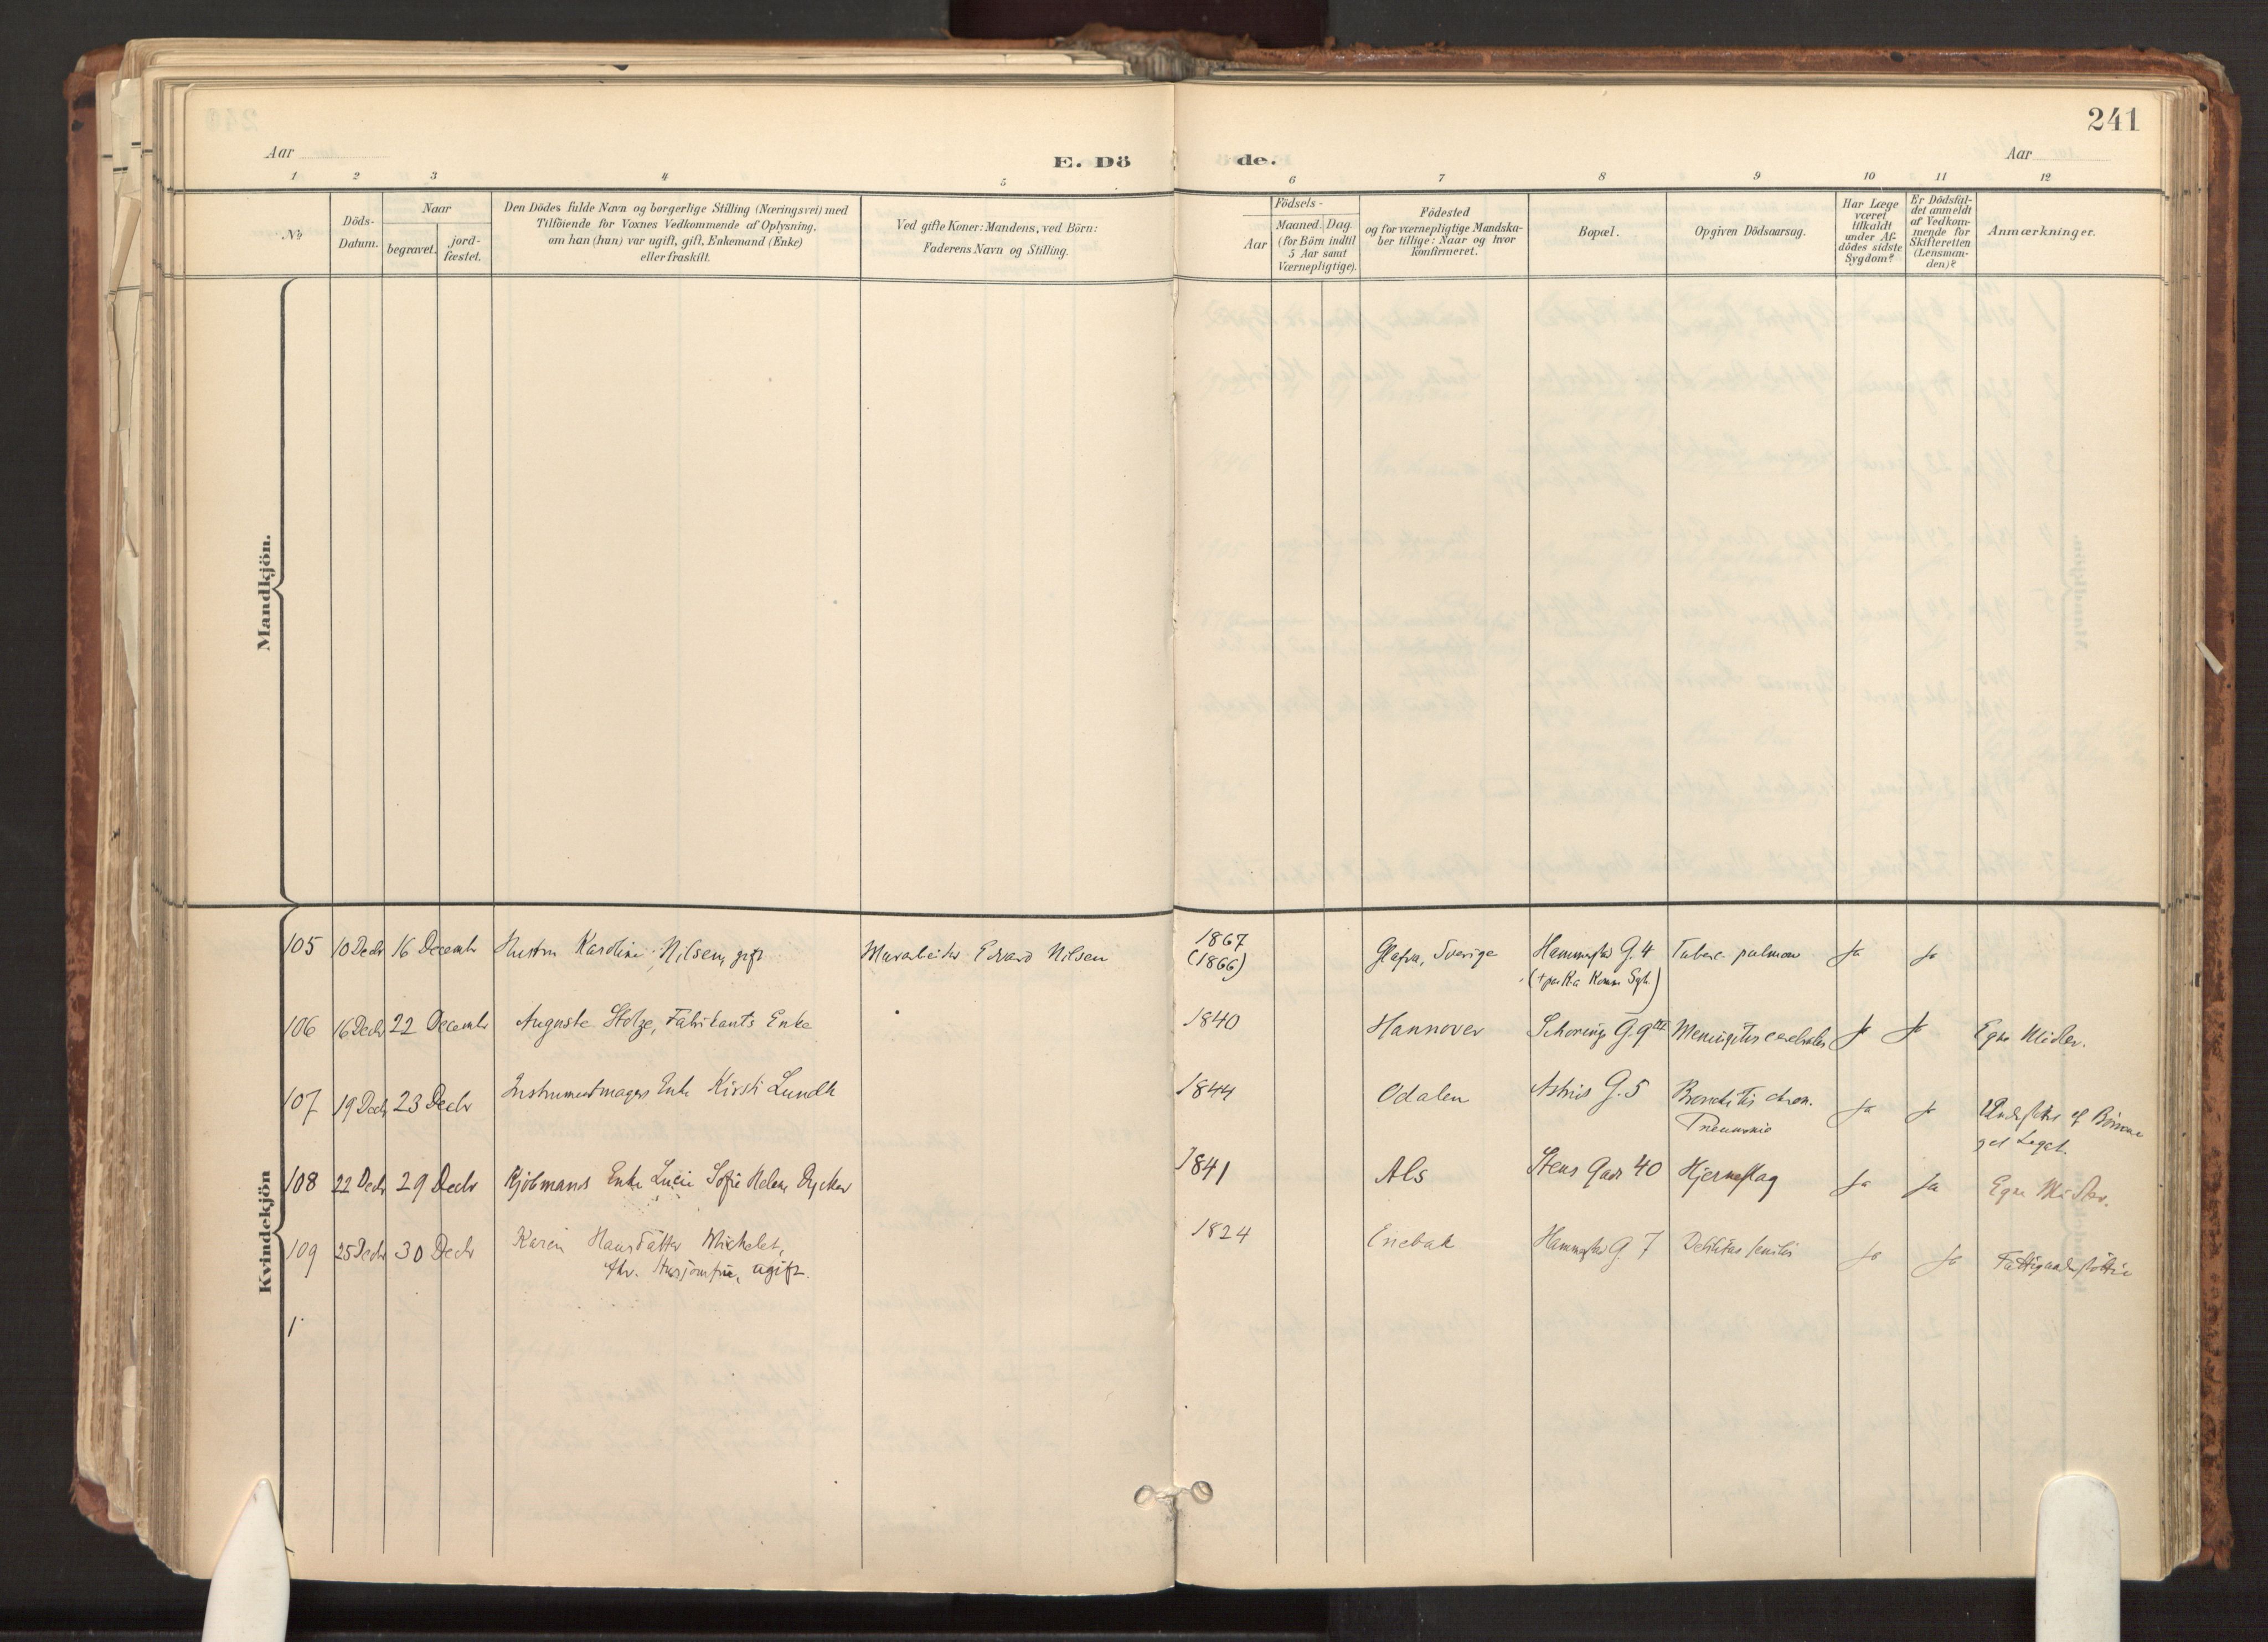 241
Aar
E. Dö
de.
Aar
1 2 3 4 5 6 7 8 9 10 11 12
Nr
Döds-
Datum.
Naar
begravet.
jord-
fæstet.
Den Dödes fulde Navn og borgerlige Stilling (Næringsvei) med
Tilföiende for Voxnes Vedkommende af Oplysning,
om han (hun) var ugift, gift, Enkemand (Enke)
eller fraskilt.
Ved gifte Koner: Mandens, ved Börn:
Faderens Navn og Stilling.
Födsels-
Aar
Maaned.
Dag.
(for Börn indtil
5 Aar samt
Værnepligtige).
Födested
og for værnepligtige Mandska-
ber tillige: Naar og hvor
konfirmeret.
Bopæl.
Opgiven Dödsaarsag.
Har Læge
været
tilkaldt
under Af-
dödes sidste
Sygdom?
Er Dödsfal-
det anmeldt
af Vedkom-
mende for
Skifteretten
(Lensman-
den)?
Anmærkninger.
Mandkjön.
Kvindekjön
105 10 Decbr 16 Decembr Hustru Karoline Nilsen, gift Murarbeider Edvard Nilsen 1867 Glafva, Sverige G. 4 Tuberc. pulmon Ja Ja
(1866)
106 16 Decbr 22 Decembr Auguste Stolze, Fabrikants Enke 1840 Hannover Schonings G. 9 Meningitis cerebralis Ja Ja Egne Midler.
107 19 Decbr 23 Decbr Instrumentmagers Enke Kirsti Lundh 1844 Odalen Astrids G. 5 Bronchitis chron. Ja Ja af Börnene
Pneumonie
Legat.
108 22 Decbr 29 Decbr Kjöbmands Enke Lucie Sofie Helene 1841 Als Stens Gade 40 Hjerneslag Ja Ja Egne Midler.
109 25 Decbr 30 Decbr Karen Hansdatter Michelet, 1824 Enebak G. 7 Debilitas senilis Ja Ja
fhv. Husjomfru, ugift.
1